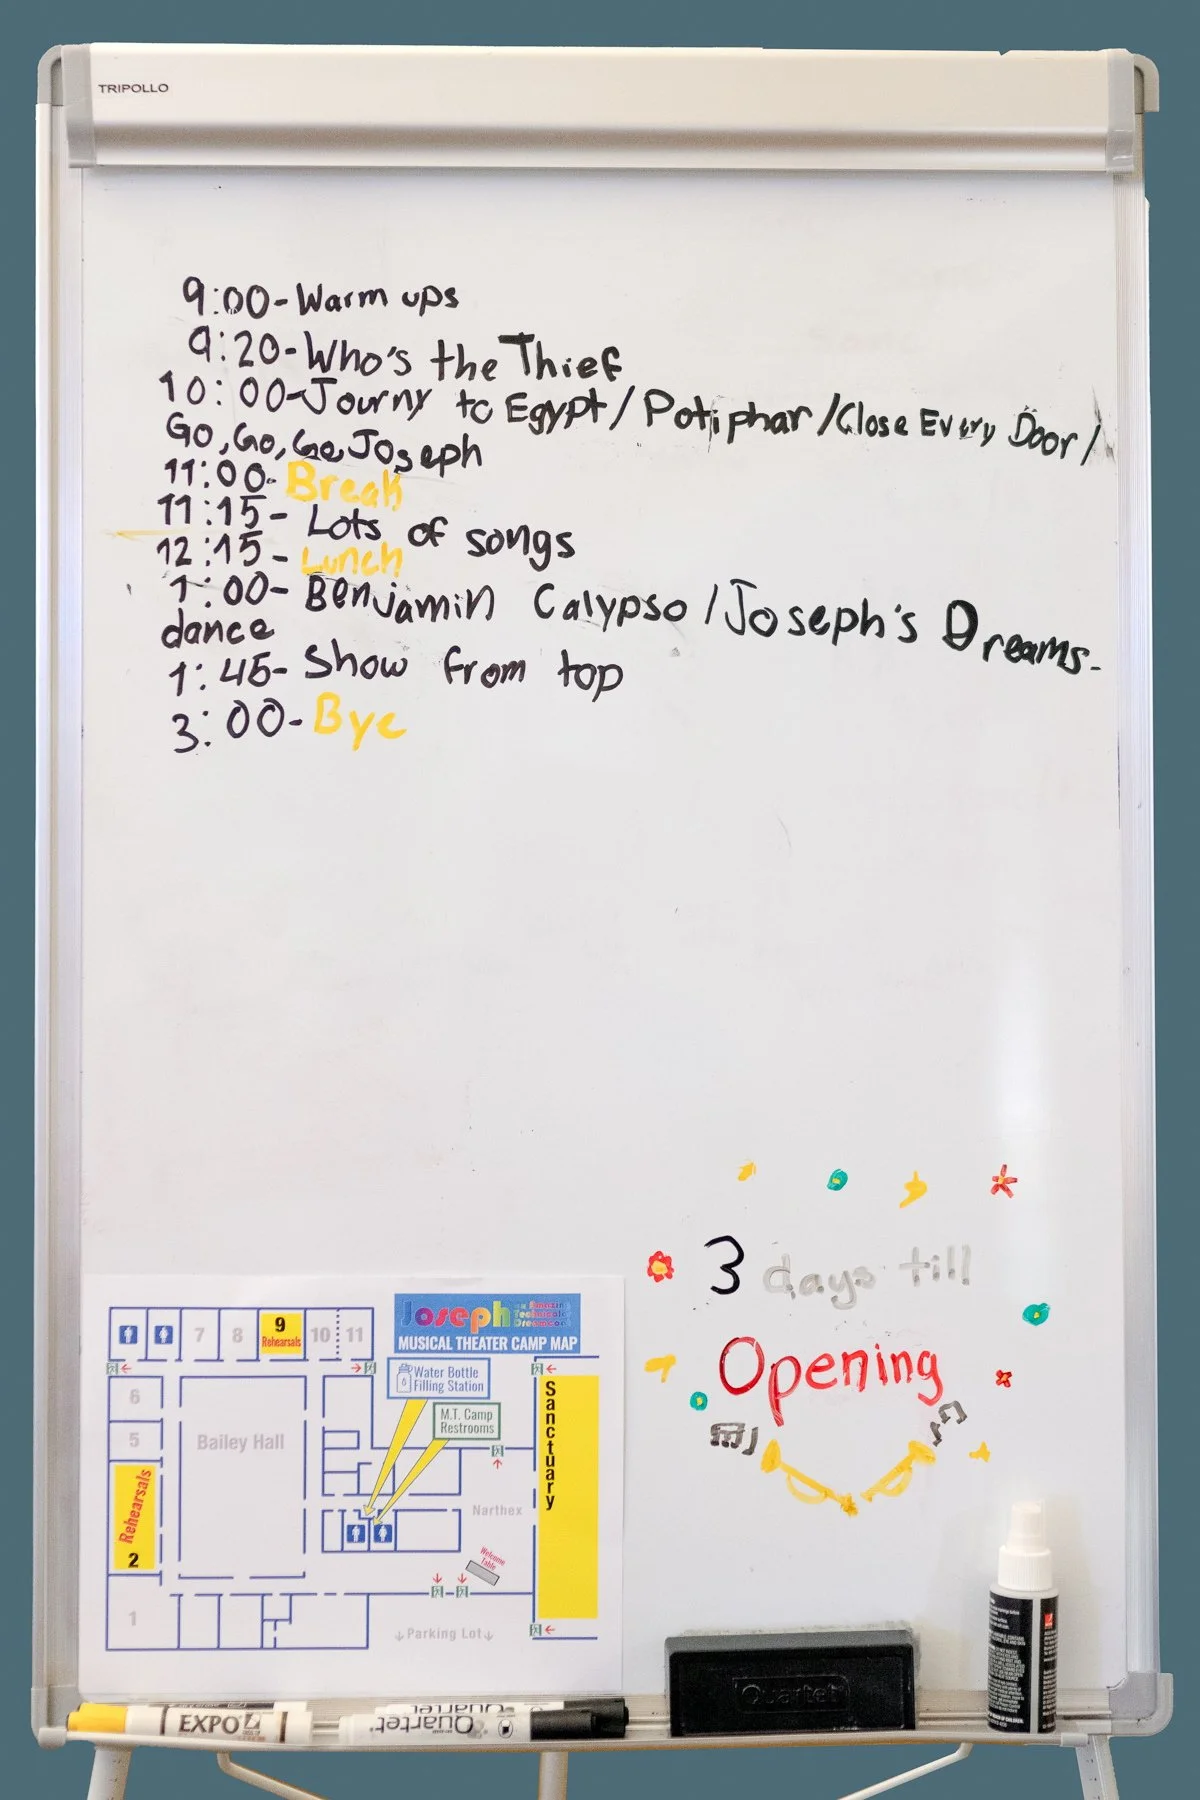 TRIPOLLO
9:00-Warm ups
9:20-Who's the Thief
10:00-Journy to Egypt/Potiphar/Close Every Door/
Go, Go, Go Joseph
11:00-Break
11:15-Lots of songs
12:15-Lunch
1:00-Benjamin Calypso/Joseph's Dreams-
dance
1:45-Show from top
3:00-Bye
3 days till
Opening
Joseph
MUSICAL THEATER CAMP MAP
7
8
9
Rehearsals
10
11
Water Bottle
Filling Station
M.T. Camp
Restrooms
Sanctuary
6
5
Bailey Hall
Rehearsals
2
Narthex
Welcome
Table
1
Parking Lot
EXPO
Quartet
Quartet
Quartet